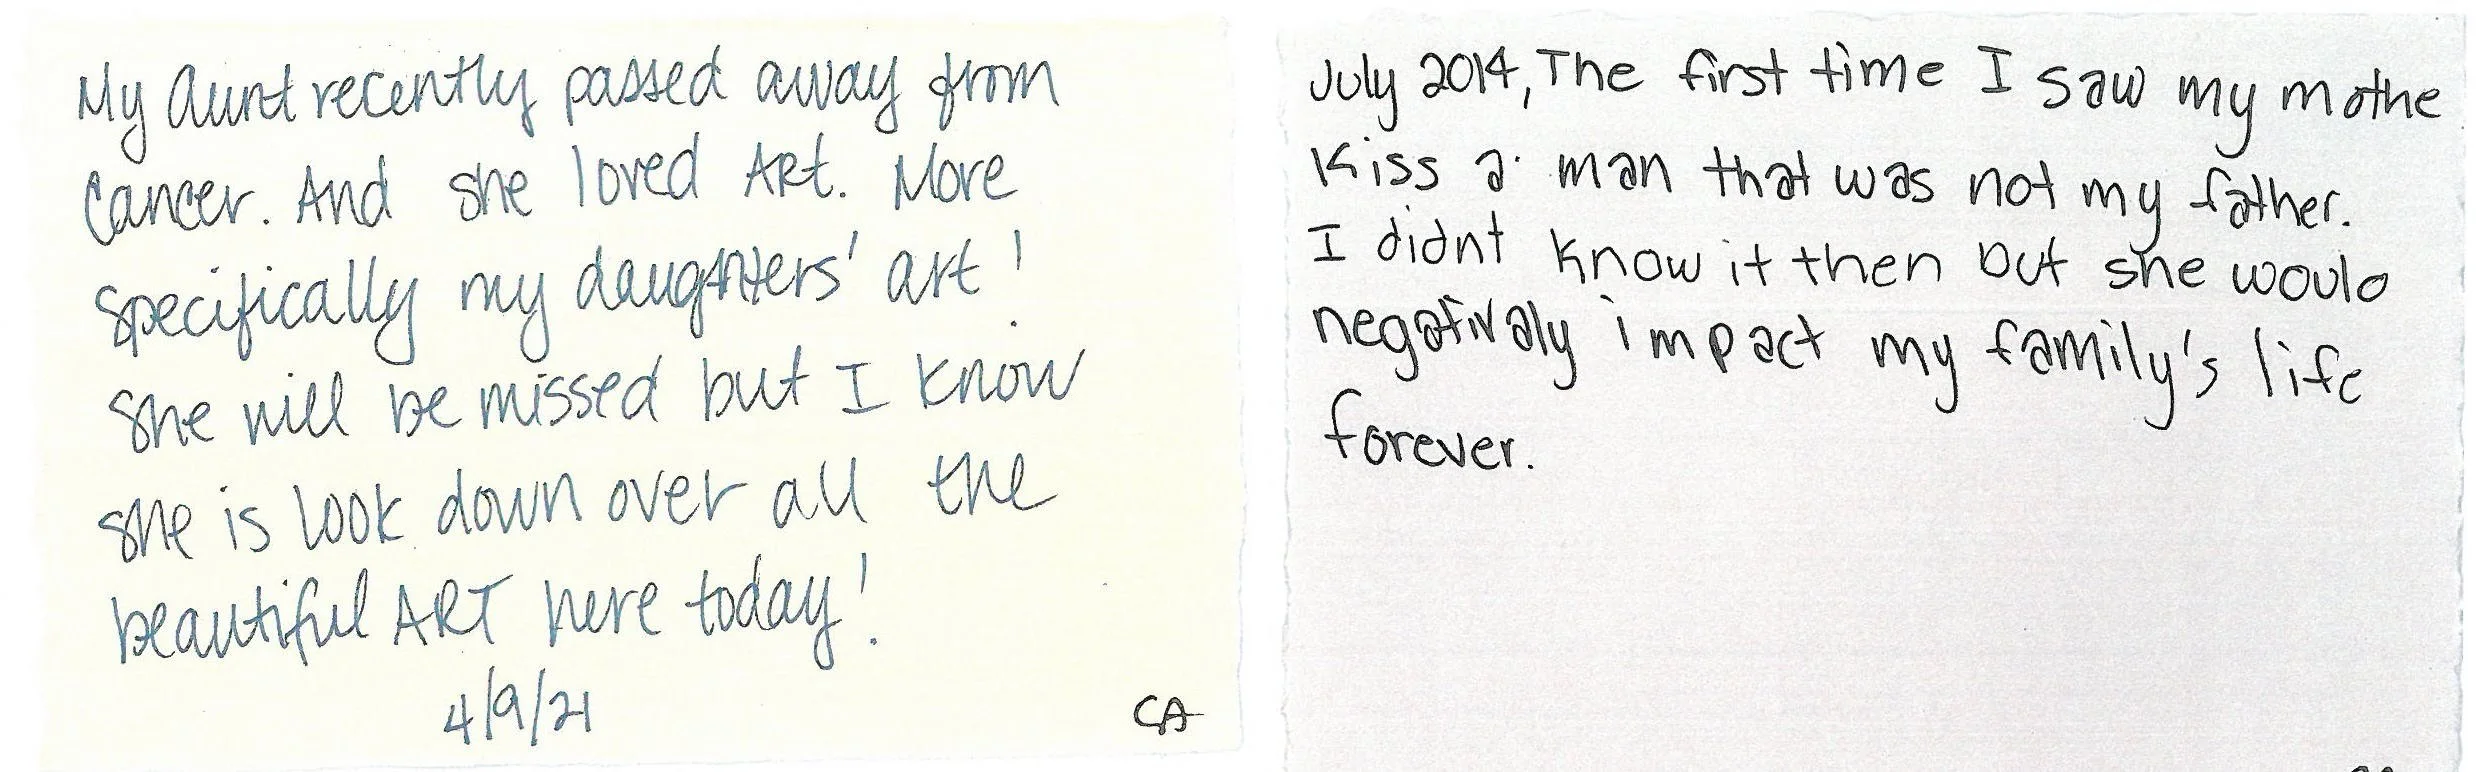 My Aunt recently passed away from
Cancer. And she loved ART. More
specifically my daughters' art!
She will be missed but I know
she is look down over all the
beautiful ART here today!
4/9/21
CA
July 2014, The first time I saw my mothe
Kiss a man that was not my father.
I didnt know it then but she would
negativaly impact my family's life
forever.